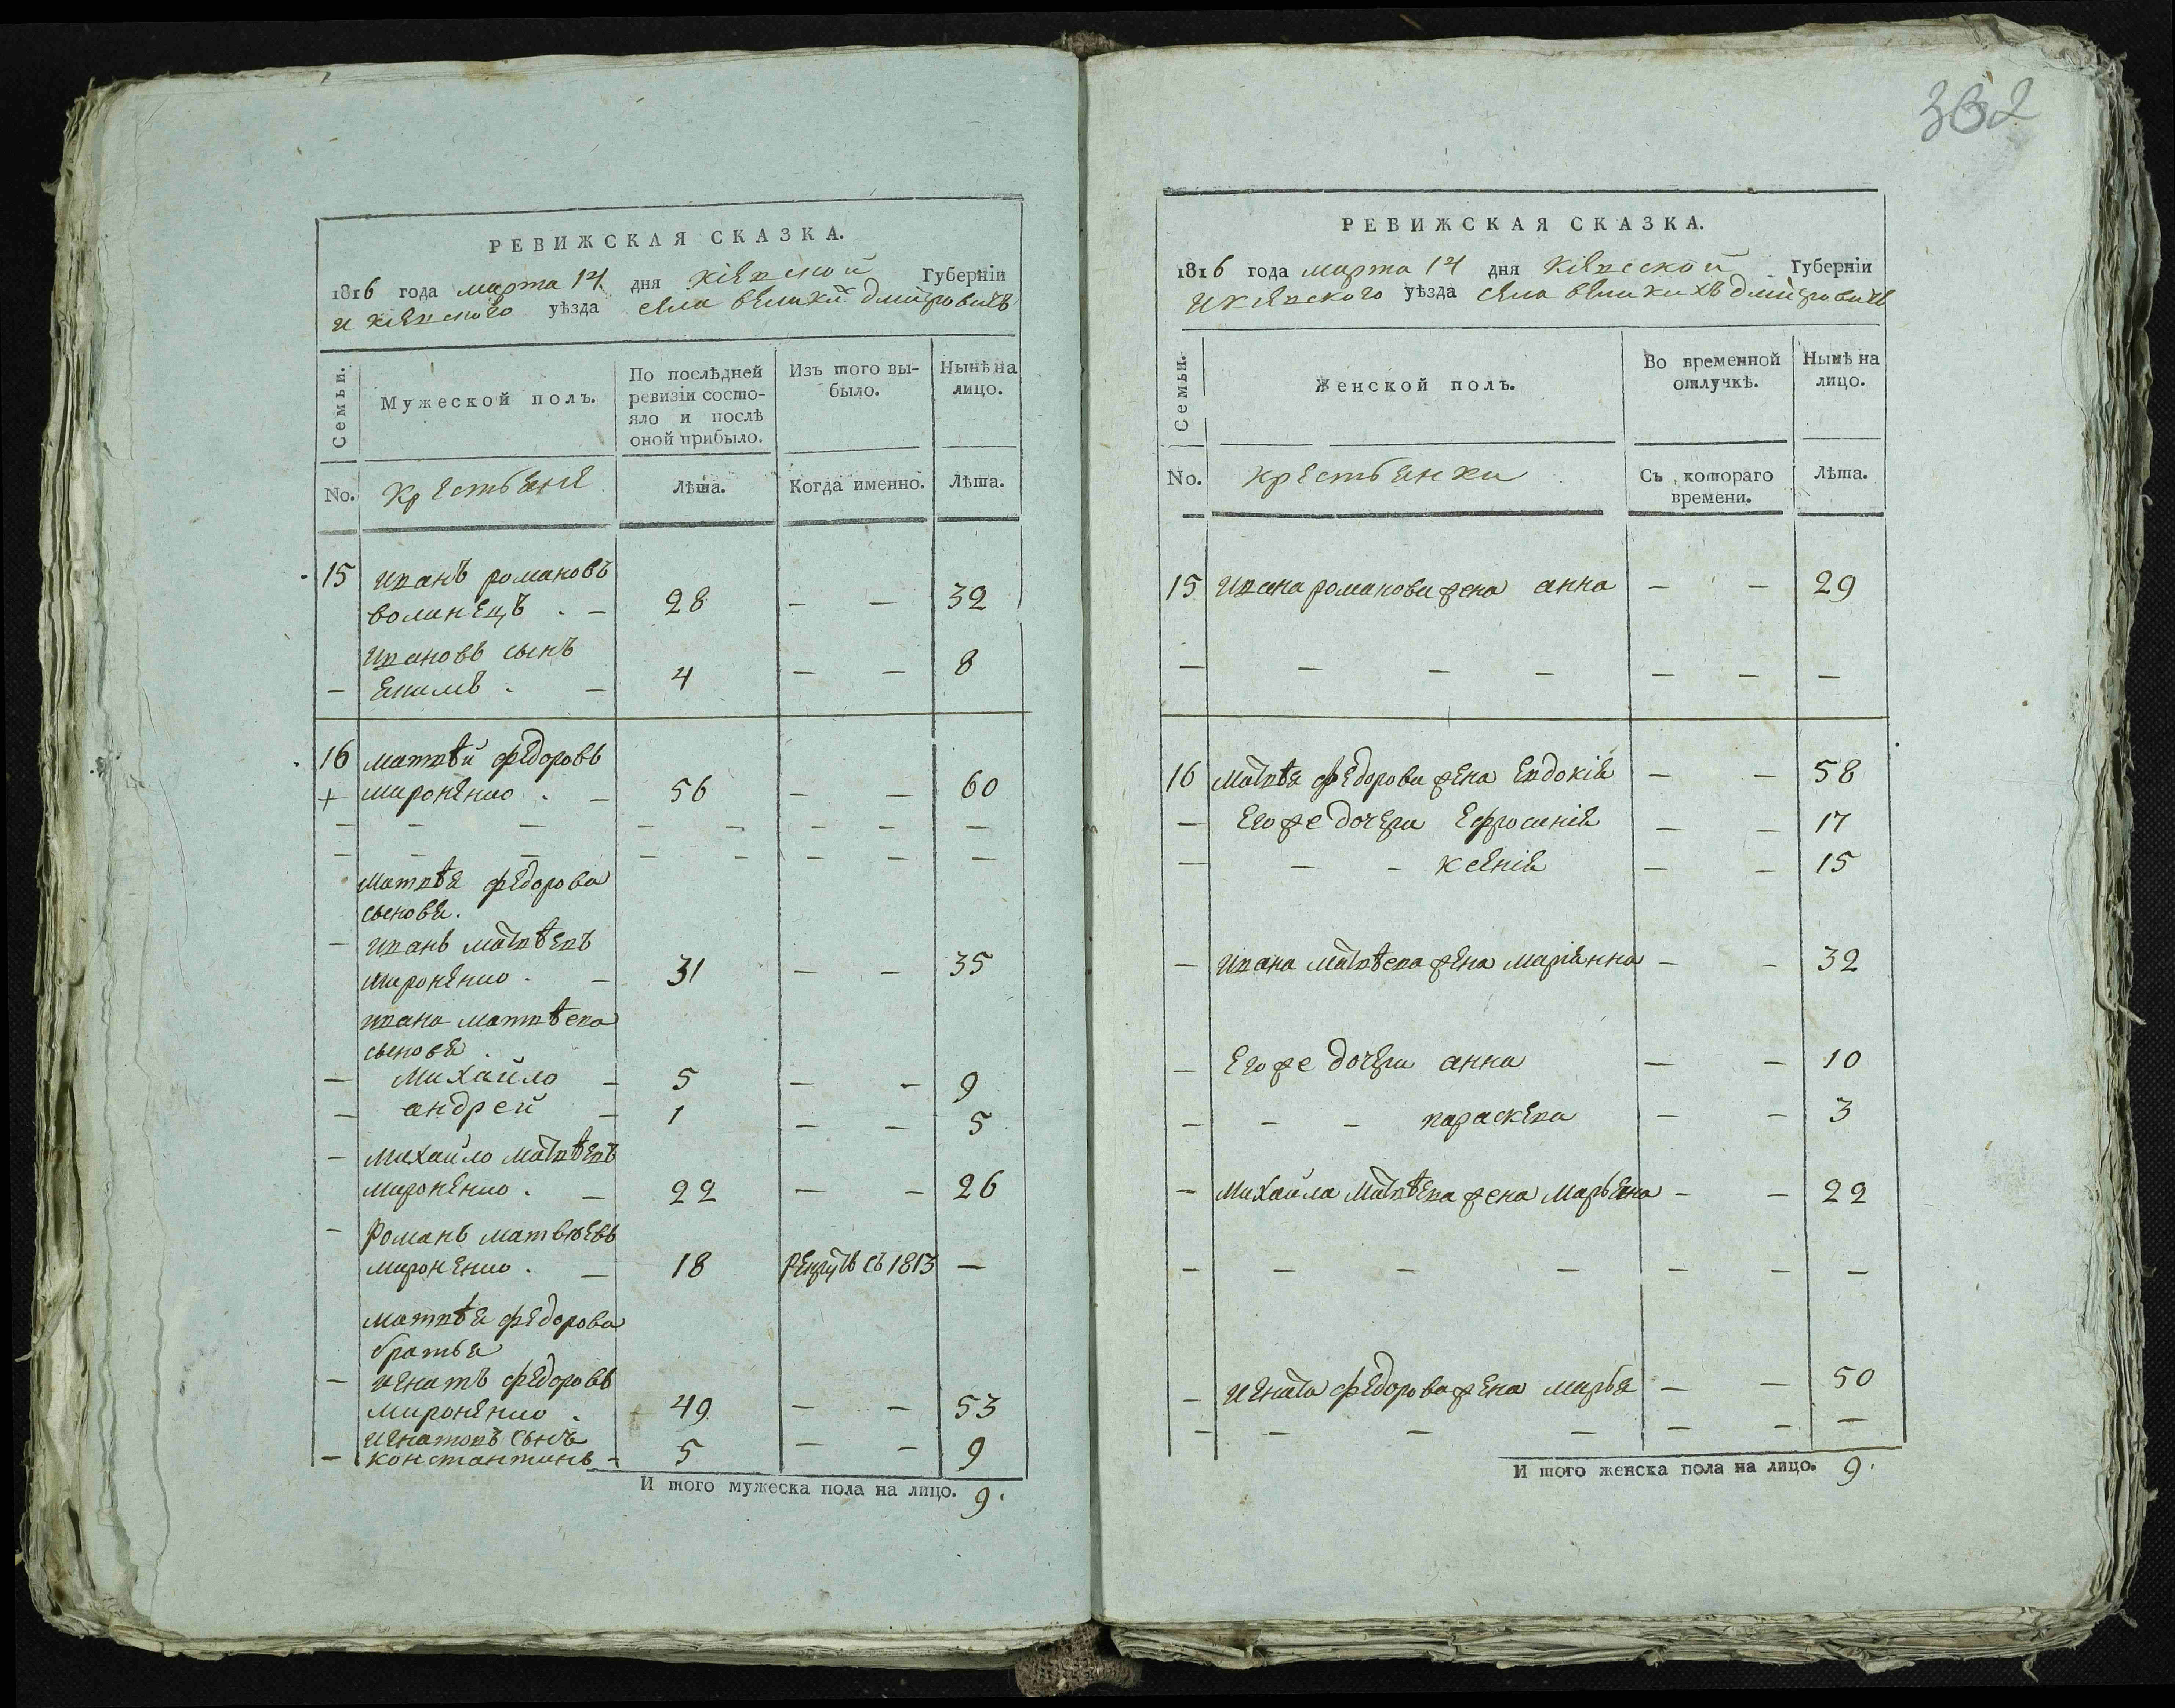 РЕВИЖСКАЯ СКАЗКА.
1816 года марта 14 дня Кіевской Губерніи
и Кіевского уѣзда села великихъ дмитровичъ
Семьи.
Мужеской полъ.
По послѣдней ревизіи состо-
яло и послѣ оной прибыло.
Изъ того вы-
было.
Нынѣ на лицо.
No. Крестьяне Лѣта. Когда именно. Лѣта.
15 иванъ романовъ
волинецъ . – 28 – – 32
ивановъ сынъ
– якимъ . – 4 – – 8
16 матвѣй федоровъ
+ мироненко . – 56 – – 60
– – – – – – – –
– – – – – – – –
матвѣя федорова
сыновя.
– иванъ матвѣевъ
мироненко . – 31 – – 35
ивана матвѣева
сыновя .
– михайло – 5 – – 9
– андрей – 1 – – 5
– михайло матвѣевъ
мироненко . – 22 – – 26
– романъ матвѣевъ
мироненко . – 18 рекрутъ съ 1813 –
матвѣя федорова
братья
– игнатъ федоровъ
мироненко . 49 – – 53
игнатовъ сынъ
– константинъ – 5 – – 9
И того мужеска пола на лицо. 9.
362
РЕВИЖСКАЯ СКАЗКА.
1816 года марта 14 дня Кіевской Губерніи
и кіевского уѣзда села великихъ дмитровичъ
Семьи.
Женской полъ.
Во временной
отлучкѣ.
Нынѣ на
лицо.
No. крестьянки Съ котораго
времени. Лѣта.
15 ивана романова жена анна – – 29
– – – – – – –
16 матвѣя федорова жена евдокія – – 58
– его же дочери ефросинія – – 17
– – – ксенія – – 15
– ивана матвѣева жена маріянна – – 32
– его же дочери анна – – 10
– – – параскева – – 3
– михайла матвѣева жена марьяна – – 22
– – – – – – –
– игната федорова жена марья – – 50
– – – – – – –
И того женска пола на лицо. 9.